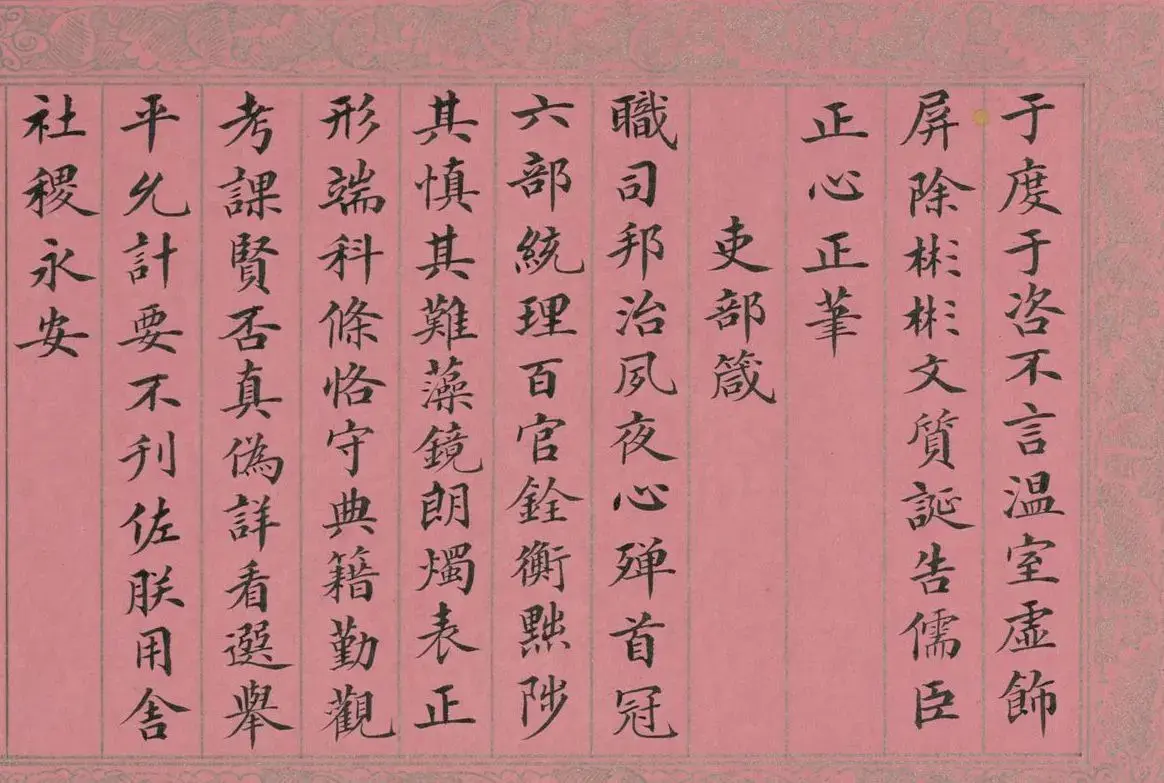 于度于咨不言温室虛飾
屏除彬彬文質誕告儒臣
正心正筆
吏部箴
職司邦治夙夜心殫首冠
六部統理百官銓衡黜陟
其慎其難藻鏡朗燭表正
形端科條恪守典籍勤觀
考課賢否真偽詳看選舉
平允計要不刋佐朕用舍
社稷永安